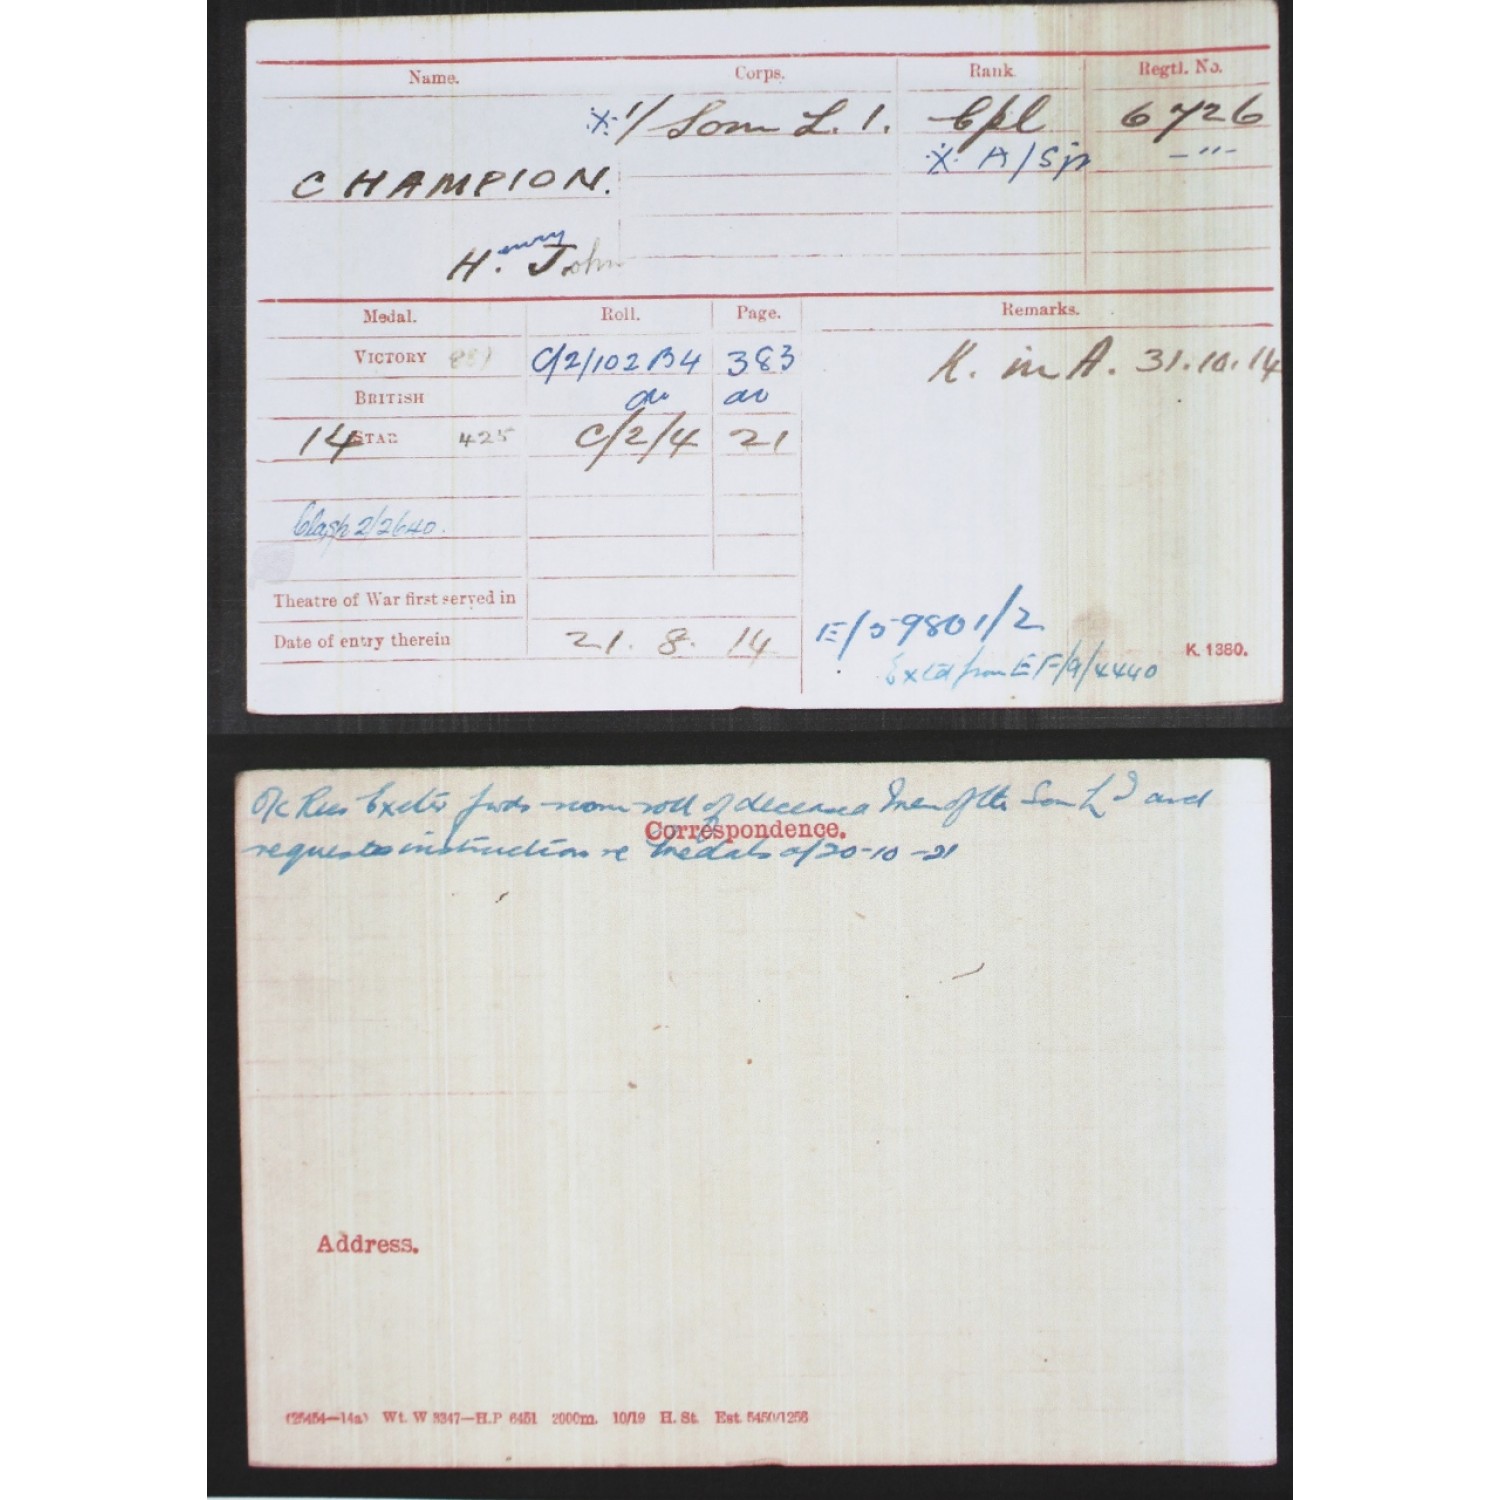 Name. Corps. Rank. Regtl. No.
※ 1/ Som L. I. Cpl 6726
※ A/Sjt —"—
CHAMPION.
Henry John
Medal. Roll. Page. Remarks.
VICTORY C/2/102 B4 383 K. in A. 31.10.14
BRITISH do do
14 STAR 425 C/2/4 21
Clasp 2/2640.
Theatre of War first served in
Date of entry therein 21. 8. 14
E/59801/2
Extd from EF/9/4440
K. 1380.
O/c Recs Exeter fwds nom roll of deceased men of the Som L I and
Correspondence.
requests instructions re medals d/20-10-21
Address.
(25454—14a) Wt. W 3347—H.P 6451 2000m. 10/19 H. St. Est. 5450/1256